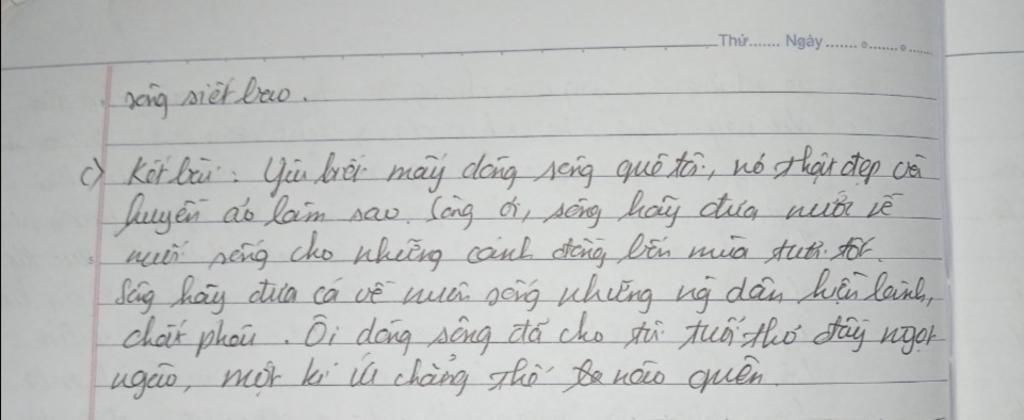 Thứ....... Ngày.......o.......o......
sông siết bao.
c) Kết bài: Yêu biết mấy dòng sông quê tôi, nó thật đẹp và
huyền ảo làm sao. Sông ơi, sông hãy đưa nước về
nuôi sống cho những cánh đồng bốn mùa tươi tốt.
Sông hãy đưa cá về nuôi sống những ng dân hiền lành,
chất phác. Ôi dòng sông đã cho tôi tuổi thơ đầy ngọt
ngào, một kí ức chẳng thể nào quên.